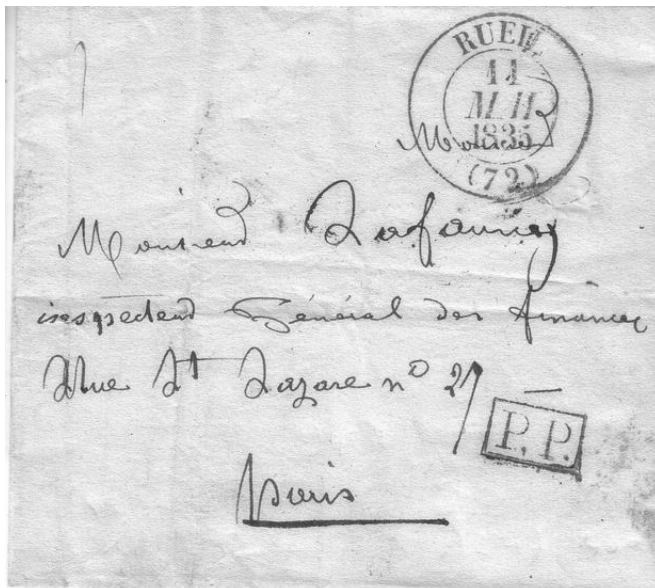 RUEIL
11
MAI
1835
(72)
Monsieur
Monsieur
inspecteur Général des finances
Rue St Lazare n° 27
P. P.
Paris